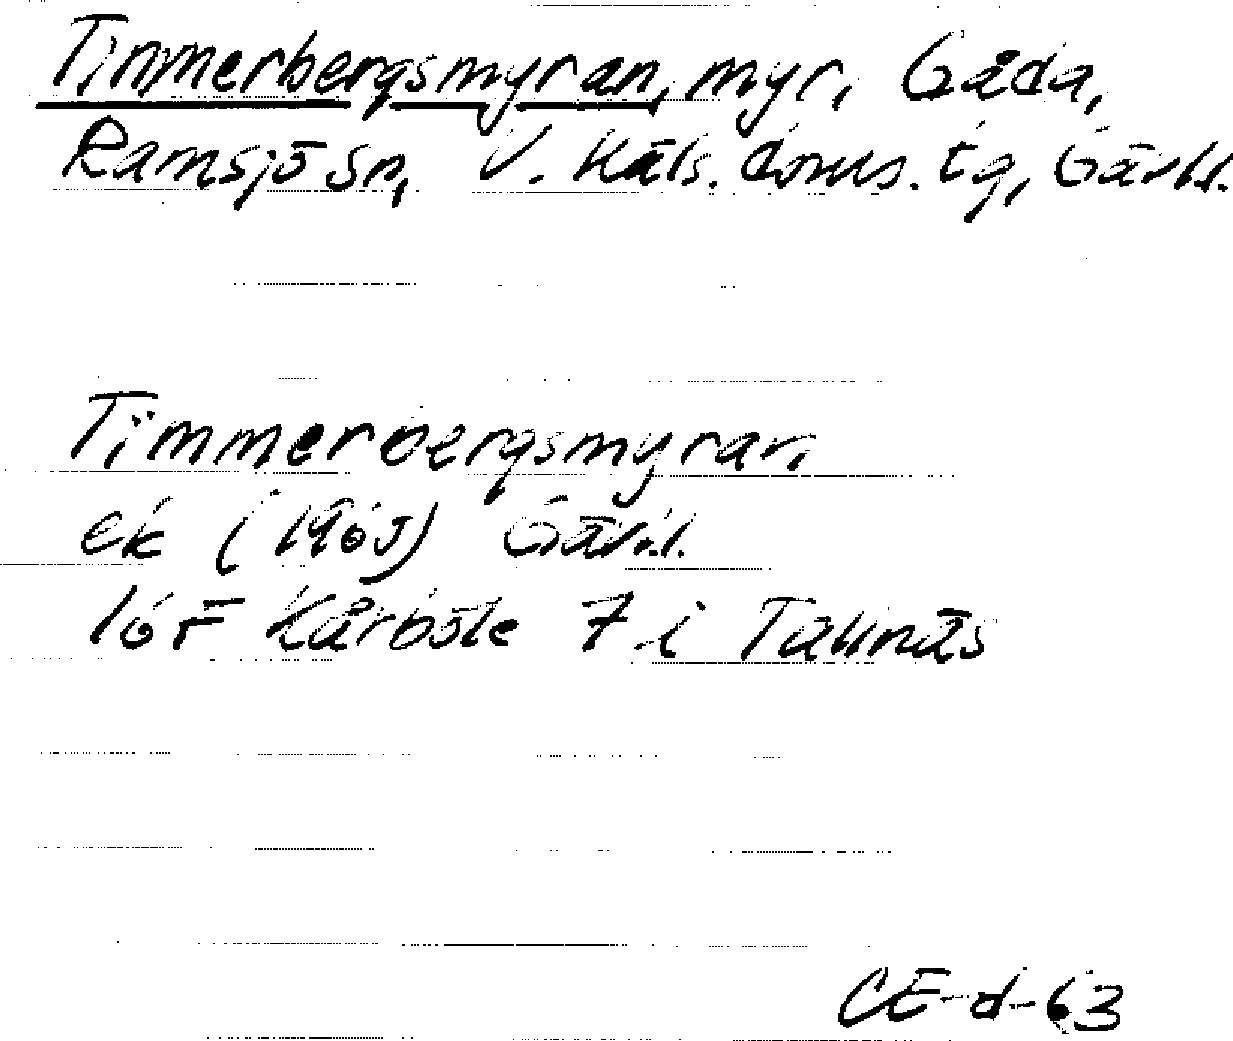 Timmerbergsmyran, myr, Gåda,
Ramsjö sn, V. Häls. doms. tg, Gävbl.
Timmerbergsmyran
ek (1965) Gävl.
16 F Kårböle 7 i Tallnäs
CE-d-63